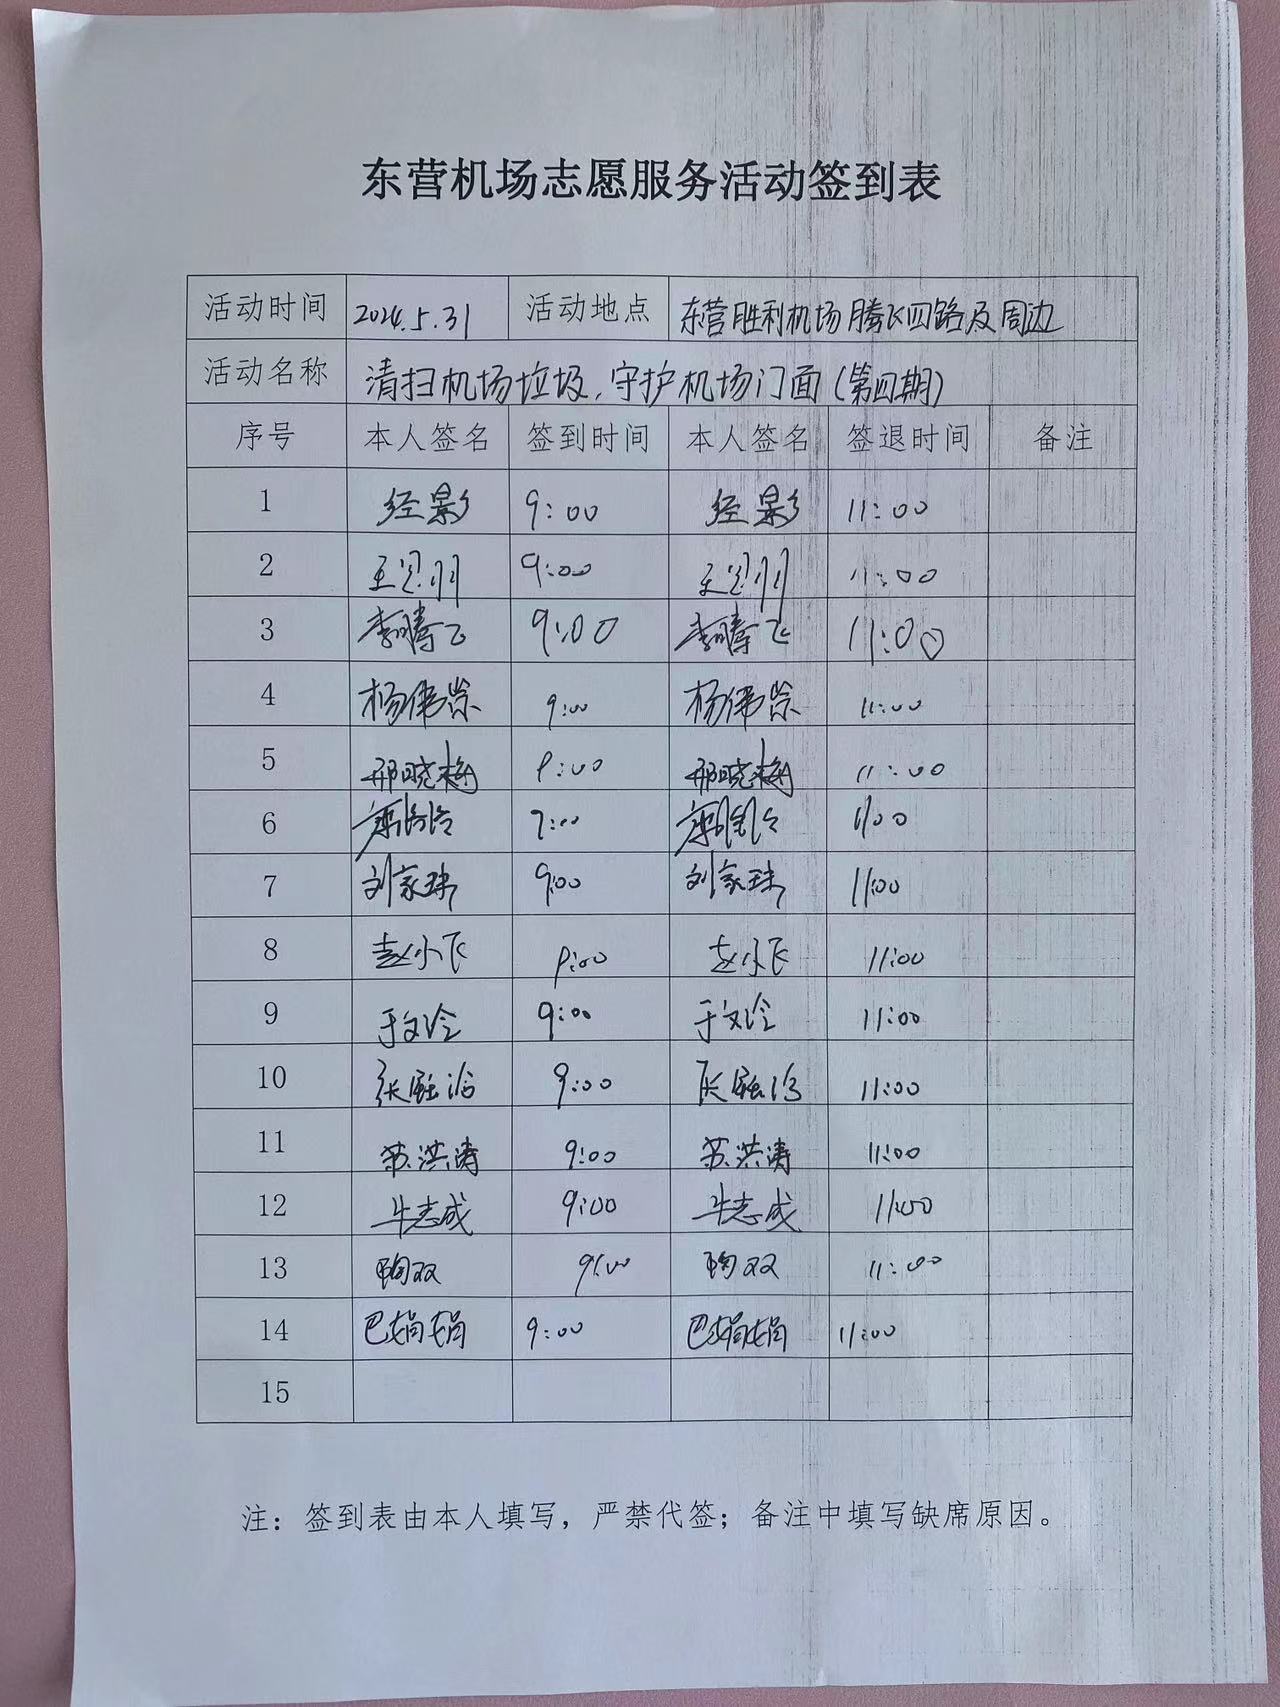 东营机场志愿服务活动签到表
活动时间 2024.5.31 活动地点 东营胜利机场腾飞四路及周边
活动名称 清扫机场垃圾,守护机场门面(第四期)
序号 本人签名 签到时间 本人签名 签退时间 备注
1 经影 9:00 经影 11:00
2 9:00 11:00
3 李腾飞 9:00 李腾飞 11:00
4 杨伟崇 9:00 杨伟崇 11:00
5 邢晓梅 9:00 邢晓梅 11:00
6 9:00 11:00
7 刘家琪 9:00 刘家琪 11:00
8 赵小飞 9:00 赵小飞 11:00
9 于文泠 9:00 于文泠 11:00
10 张融冶 9:00 张融冶 11:00
11 苏洪涛 9:00 苏洪涛 11:00
12 牛志成 9:00 牛志成 11:00
13 9:00 11:00
14 巴娟娟 9:00 巴娟娟 11:00
15
注：签到表由本人填写，严禁代签；备注中填写缺席原因。